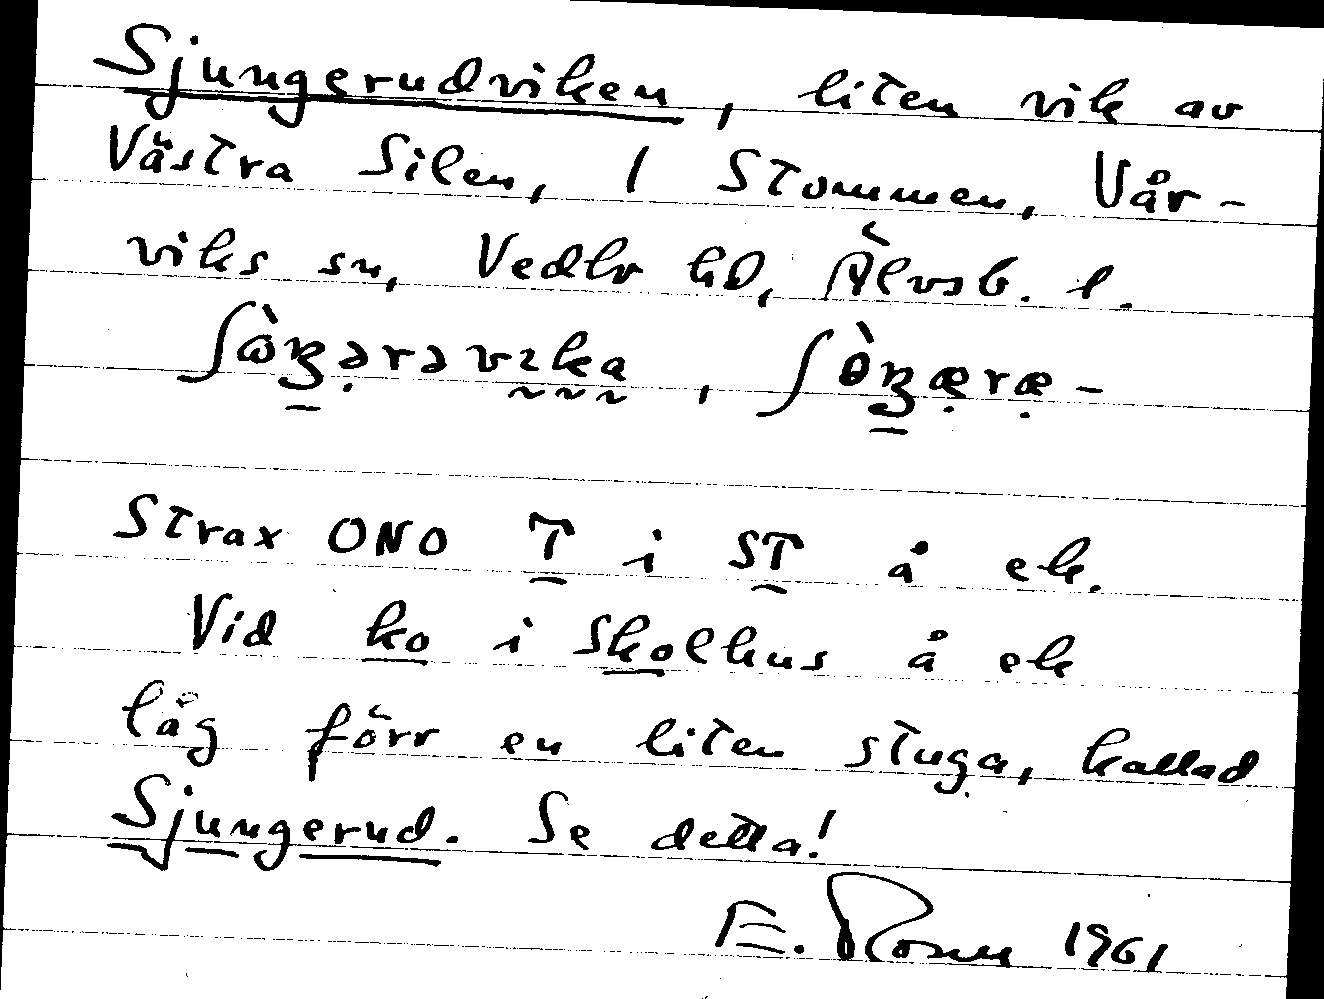 Sjungerudviken, liten vik av
Västra Silen, 1 Stommen, Vår-
viks sn, Vedbo hd, Älvsb. l.
ʃòŋ̱ərəvɪka, ʃòŋ̱æræ-
Strax ONO T i ST å ek.
Vid ko i Skolhus å ek
låg förr en liten stuga, kallad
Sjungerud. Se detta!
E. Rosell 1961